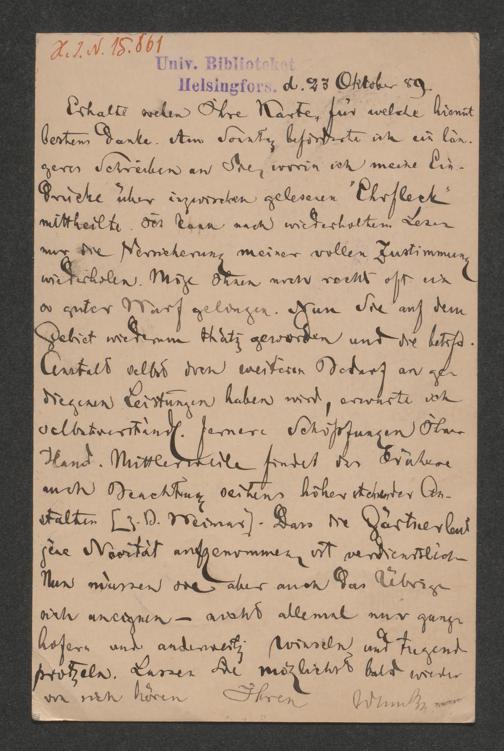 H.I.N. 15.861
Univ. Biblioteket
Helsingfors. d. 23 Oktober 89.
Erhalte soeben Ihre Karte, für welche hiemit
bestens danke. Am Sonntg beförderte ich ein län-
geres Schreiben an Sie, worin ich meine Ein-
drücke über inzwischen gelesenen "Ehrfleck"
mittheilte. Ich kann nach wiederholtem Lesen
nur die Versicherung meiner vollen Zustimmung
wiederholen. Möge Ihnen noch recht oft ein
so guter Wurf gelingen. Nun Sie auf dem
Gebiet wiederum thätg geworden und die betreff.
Anstalt selbst den weiteren Bedarf an ge-
diegenen Leistungen haben wird, erwarte ich
selbstverständl. fernere Schöpfungen Ihrer
Hand. Mittlerweile findet das Frühere
auch Beachtung seitens höher stehender An-
stalten [z. B. Weimar]. Dass die
Novität aufgenommen, ist verdienstlich
Nun müssen sie aber auch das Übrige
sich aneignen — nicht allemal nur
hofern und anderweitg winseln und Tugend
protzeln. Lassen Sie möglichst bald wieder
von sich hören Ihren